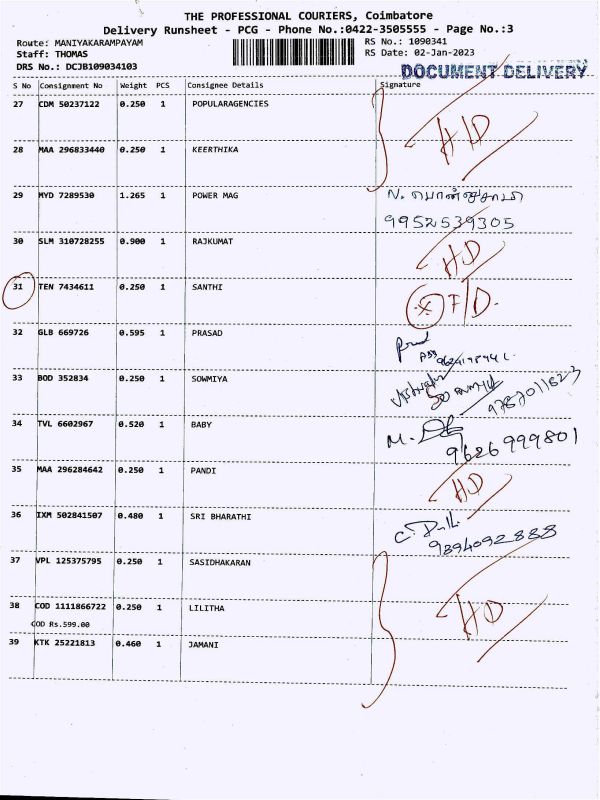 THE PROFESSIONAL COURIERS, Coimbatore
Delivery Runsheet - PCG - Phone No.:0422-3505555 - Page No.:3
Route: MANIYAKARAMPAYAM RS No.: 1090341
Staff: THOMAS RS Date: 02-Jan-2023
DRS No.: DCJB109034103 DOCUMENT DELIVERY
S No Consignment No Weight PCS Consignee Details Signature
27 CDM 50237122 0.250 1 POPULARAGENCIES
H/D
28 MAA 296833440 0.250 1 KEERTHIKA
29 MYD 7289530 1.265 1 POWER MAG
N. பொன்னுசாமி
9952539305
30 SLM 310728255 0.900 1 RAJKUMAT
HD
31 TEN 7434611 0.250 1 SANTHI
F/D.
32 GLB 669726 0.595 1 PRASAD
33 BOD 352834 0.250 1 SOWMIYA
9787011823
34 TVL 6602967 0.520 1 BABY
M.
9626999801
35 MAA 296284642 0.250 1 PANDI
HD
36 IXM 502841507 0.480 1 SRI BHARATHI
C.
9894092888
37 VPL 125375795 0.250 1 SASIDHAKARAN
38 COD 1111866722 0.250 1 LILITHA
HD
COD Rs.599.00
39 KTK 25221813 0.460 1 JAMANI